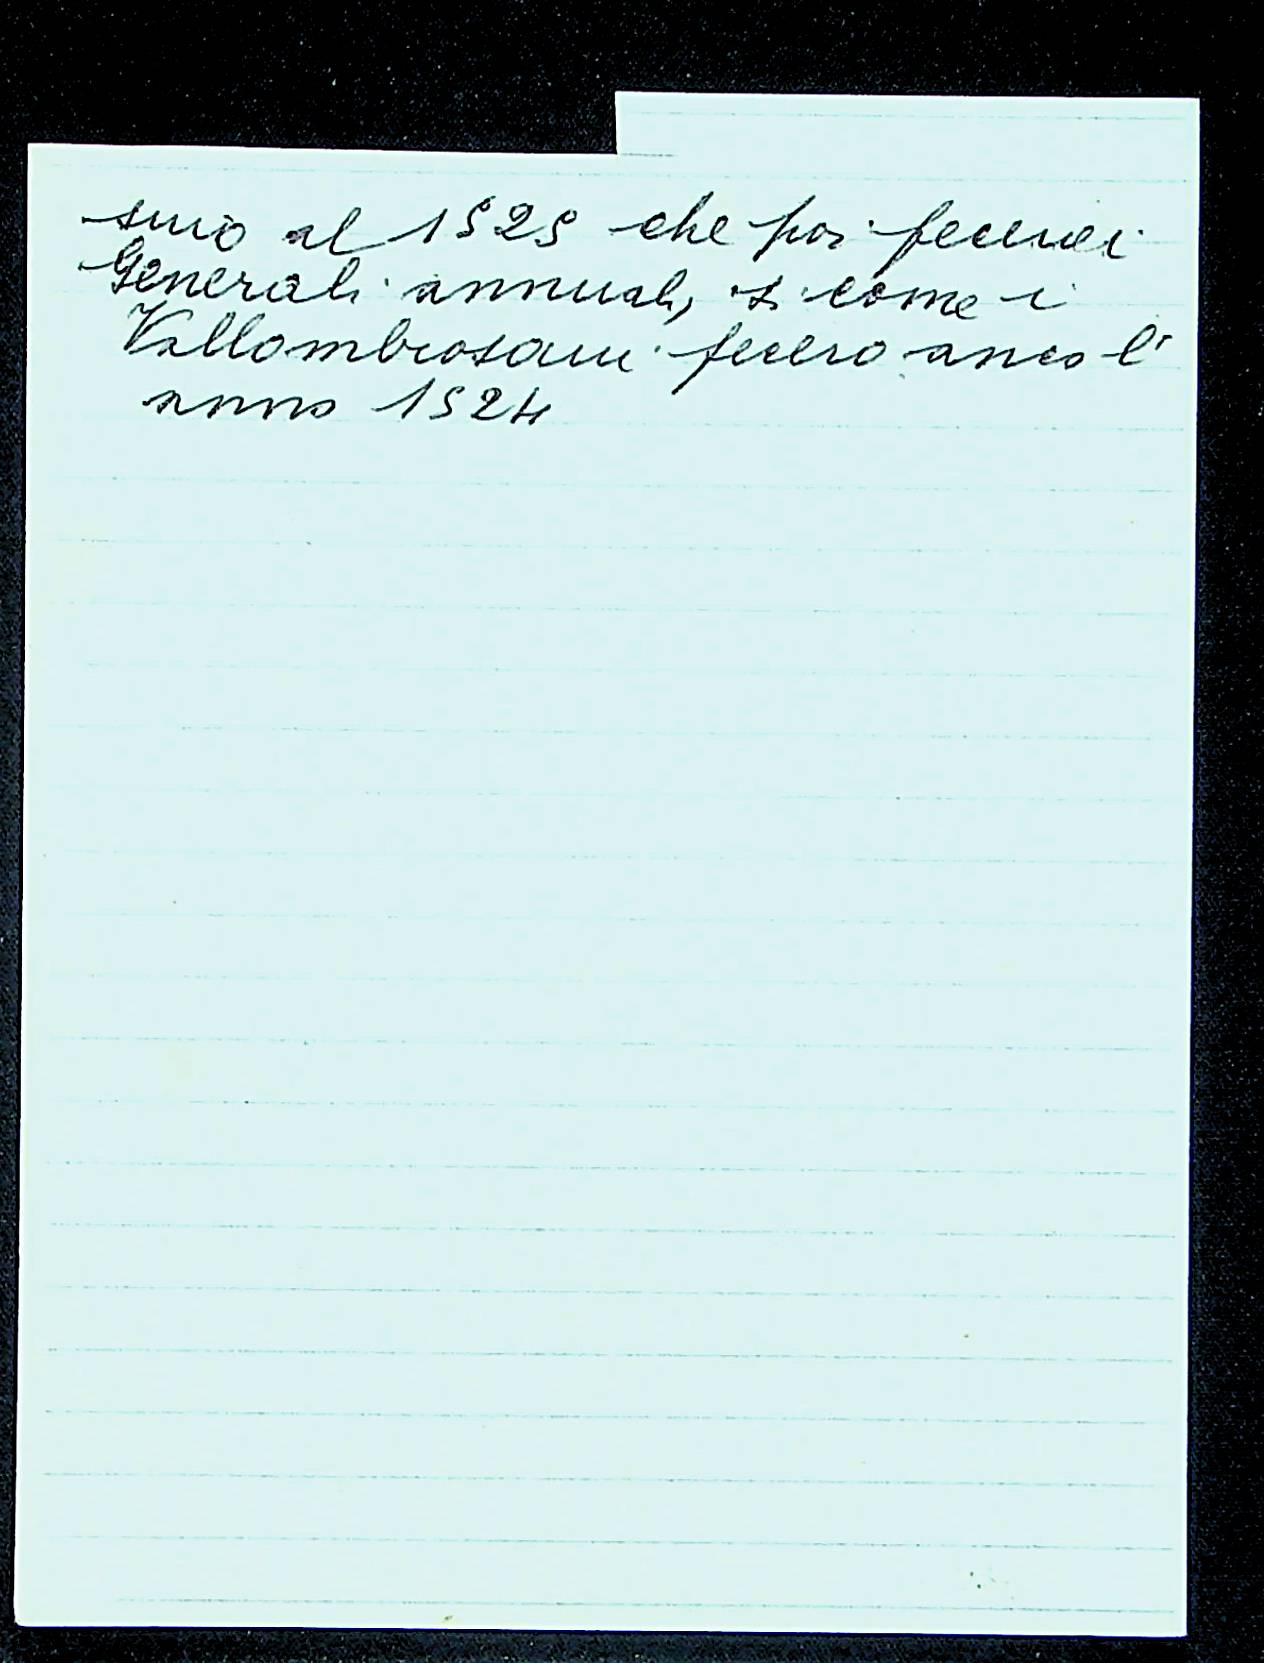 sino al 1525 che poi fecero i
Generali annuali, si come i
Vallombrosani fecero anco l'
anno 1524